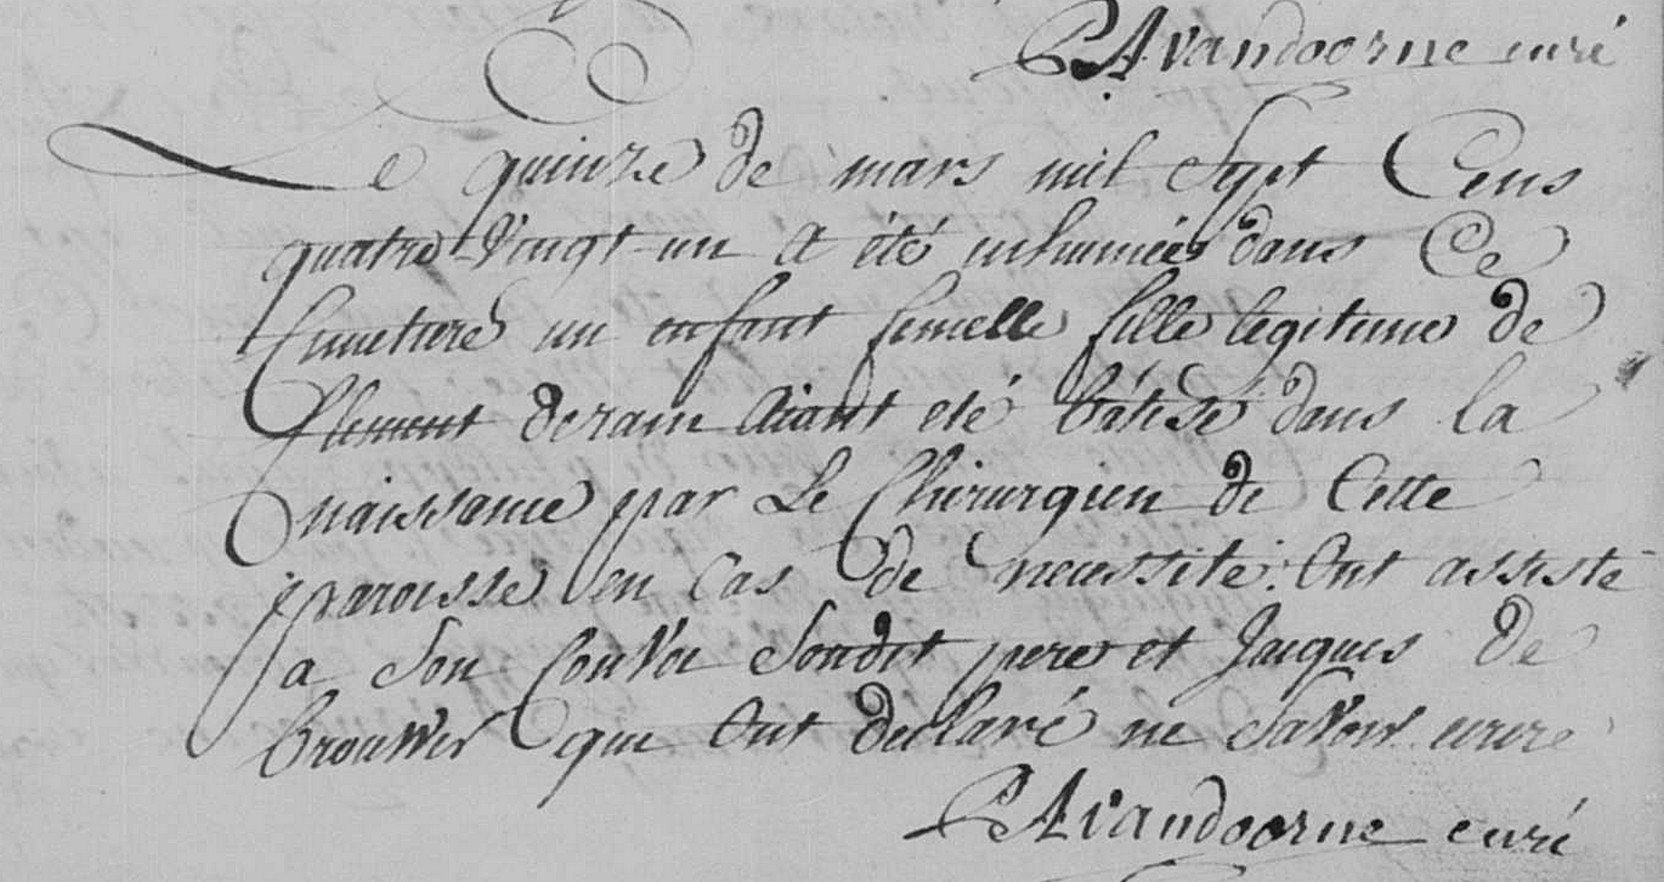 PA vandoorne curé
Le quinze de mars mil Sept Cens
quatre Vingt-un a été inhumée dans Ce
Cimetiere un enfant femelle fille legitime de
Clement deram aiant eté bâtisé dans la
naissance par Le Chirurgien de Cette
paroisse en Cas de necessité. Ont assisté
a Son Convoi Sondit pere et Jacques De
brouwer que Ont declaré ne Savoir ecrire
PA Vandoorne curé